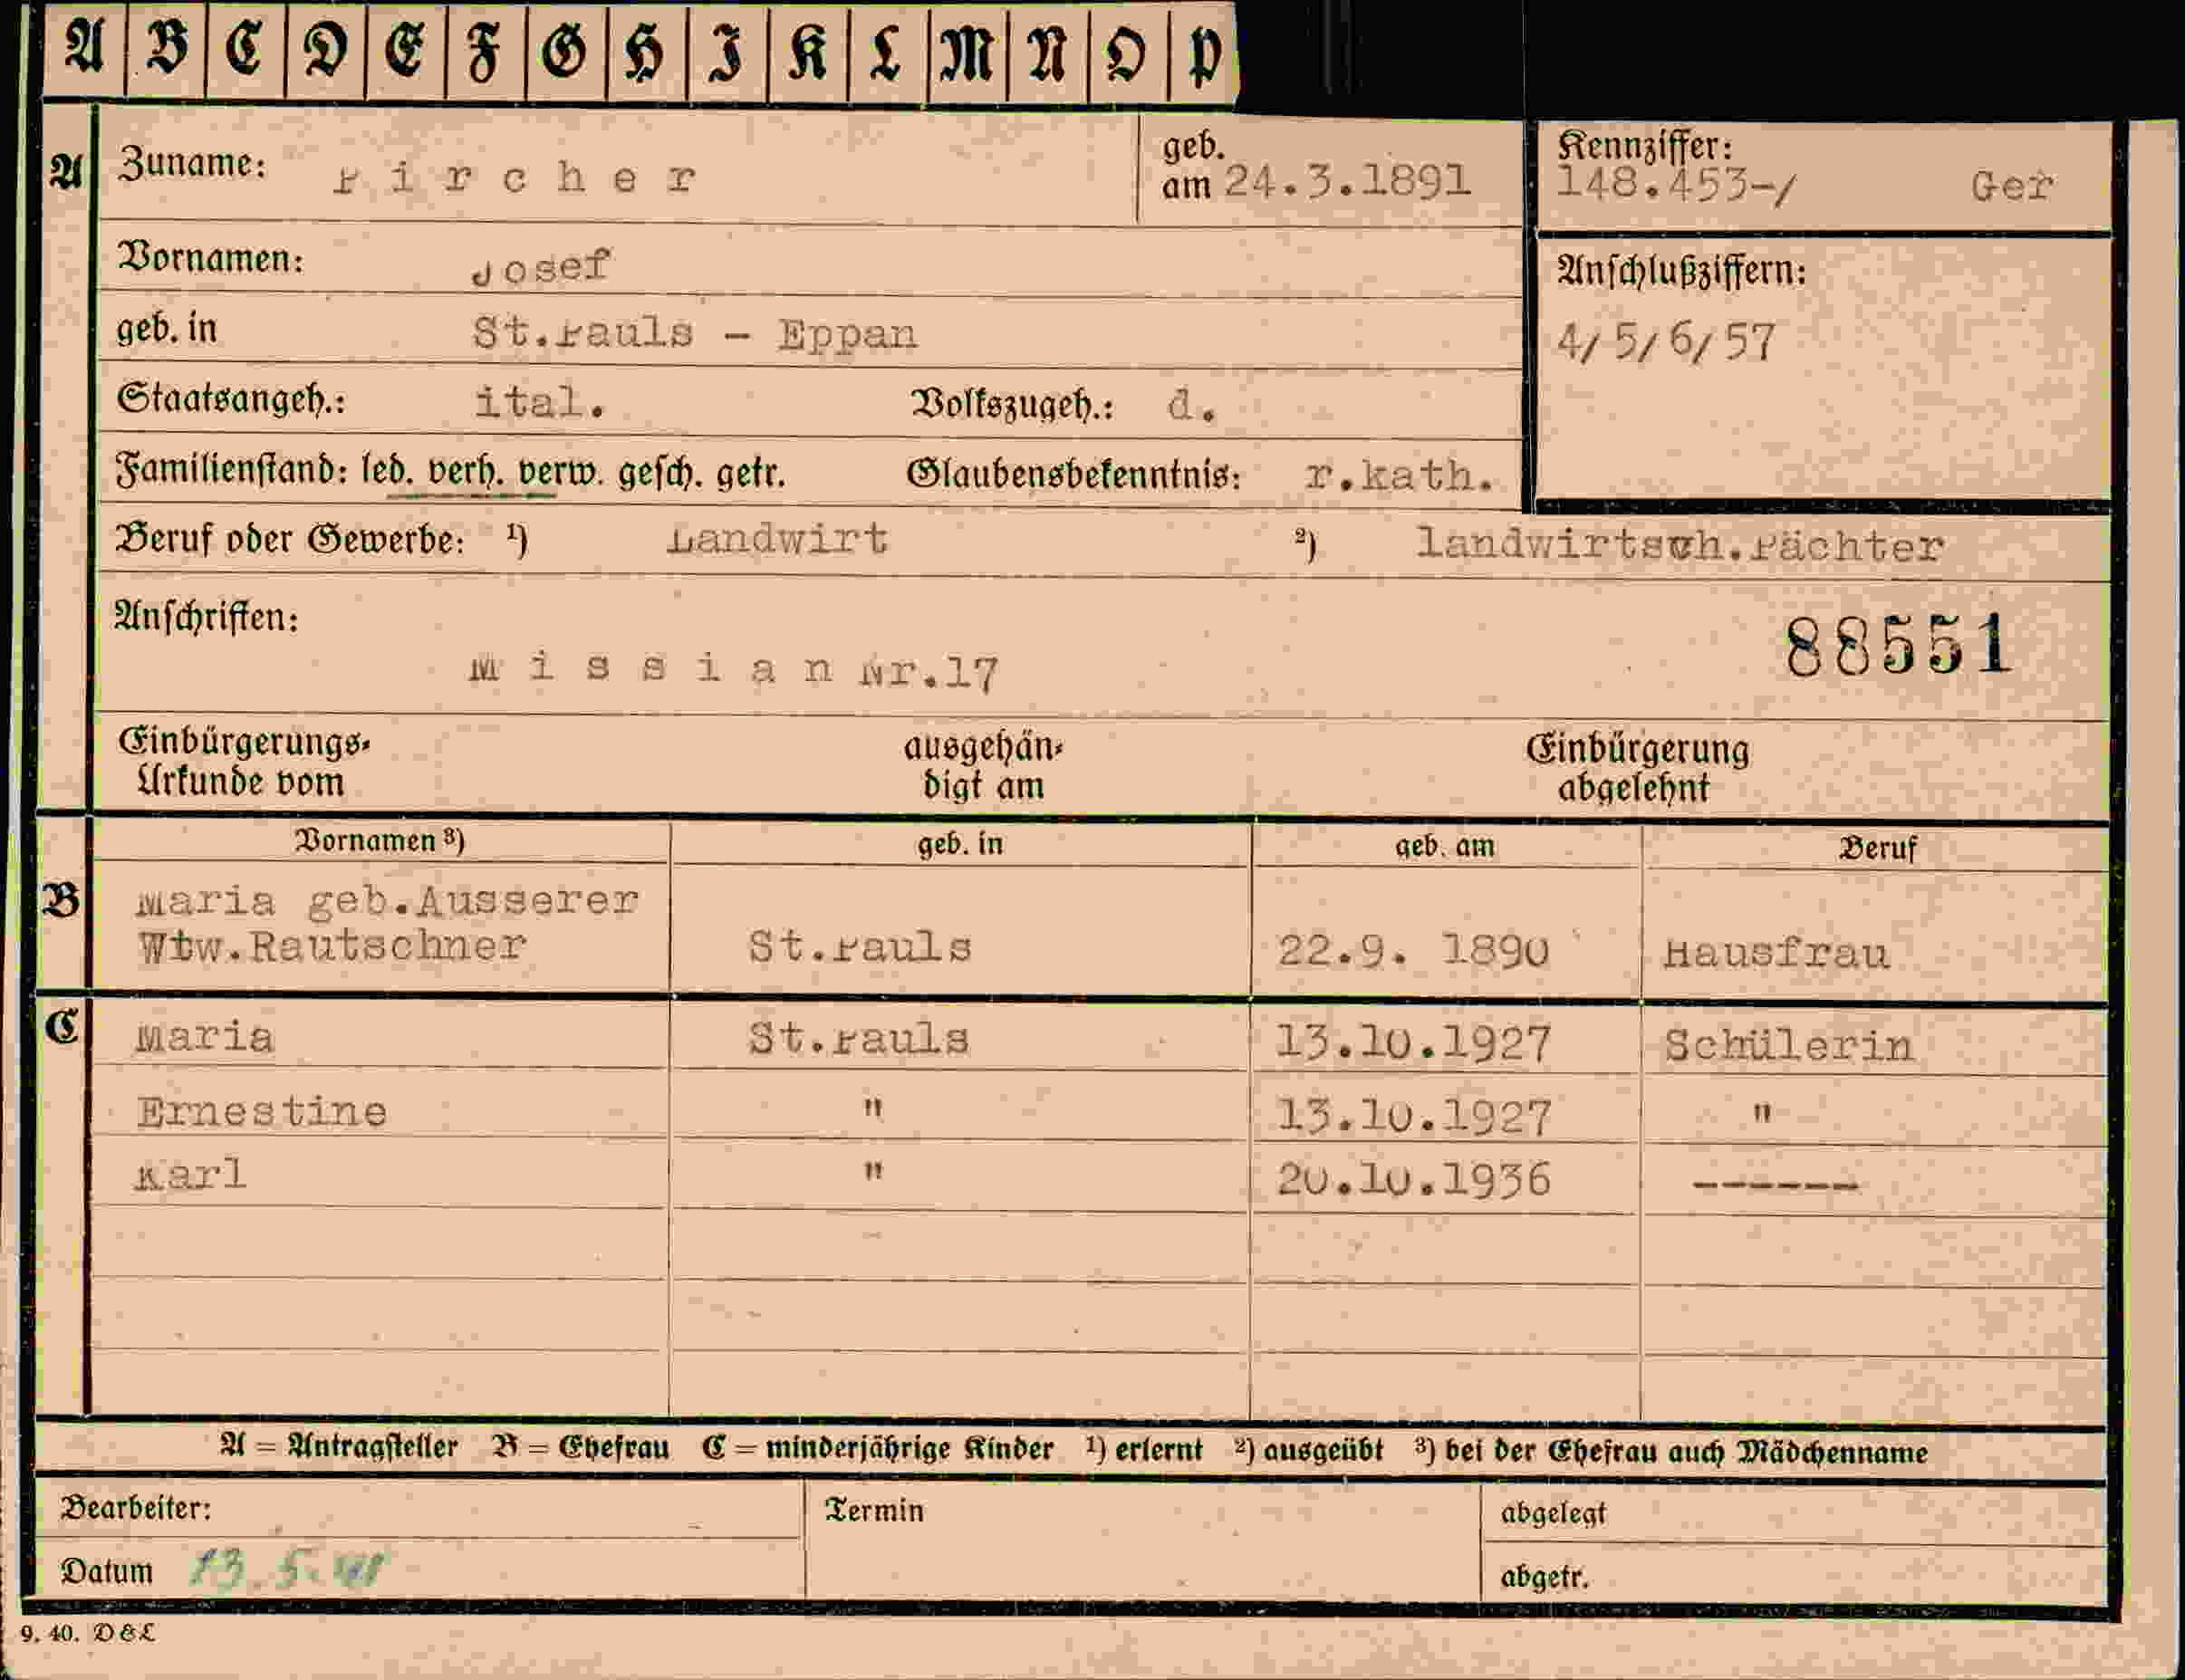 A B C D E F G H I K L M N O P
A Zuname: Pircher geb. am 24.3.1891 Kennziffer: 148.453-/ Ger
Vornamen: Josef Anschlußziffern:
geb. in St.Pauls - Eppan 4/5/6/57
Staatsangeh.: ital. Volkszugeh.: d.
Familienstand: led. verh. verw. gesch. getr. Glaubensbekenntnis: r.kath.
Beruf oder Gewerbe: 1) Landwirt 2) landwirtsch.Pächter
Anschriften: 88551
Missian Nr.17
Einbürgerungs- ausgehän- Einbürgerung
Urkunde vom digt am abgelehnt
Vornamen 3) geb. in geb. am Beruf
B Maria geb.Ausserer
Wtw.Rautschner St.Pauls 22.9. 1890 Hausfrau
C Maria St.Pauls 13.10.1927 Schülerin
Ernestine " 13.10.1927 "
Karl " 20.10.1936 ------
A = Antragsteller B = Ehefrau C = minderjährige Kinder 1) erlernt 2) ausgeübt 3) bei der Ehefrau auch Mädchenname
Bearbeiter: Termin abgelegt
Datum 13.5.41 abgetr.
9. 40. D & L